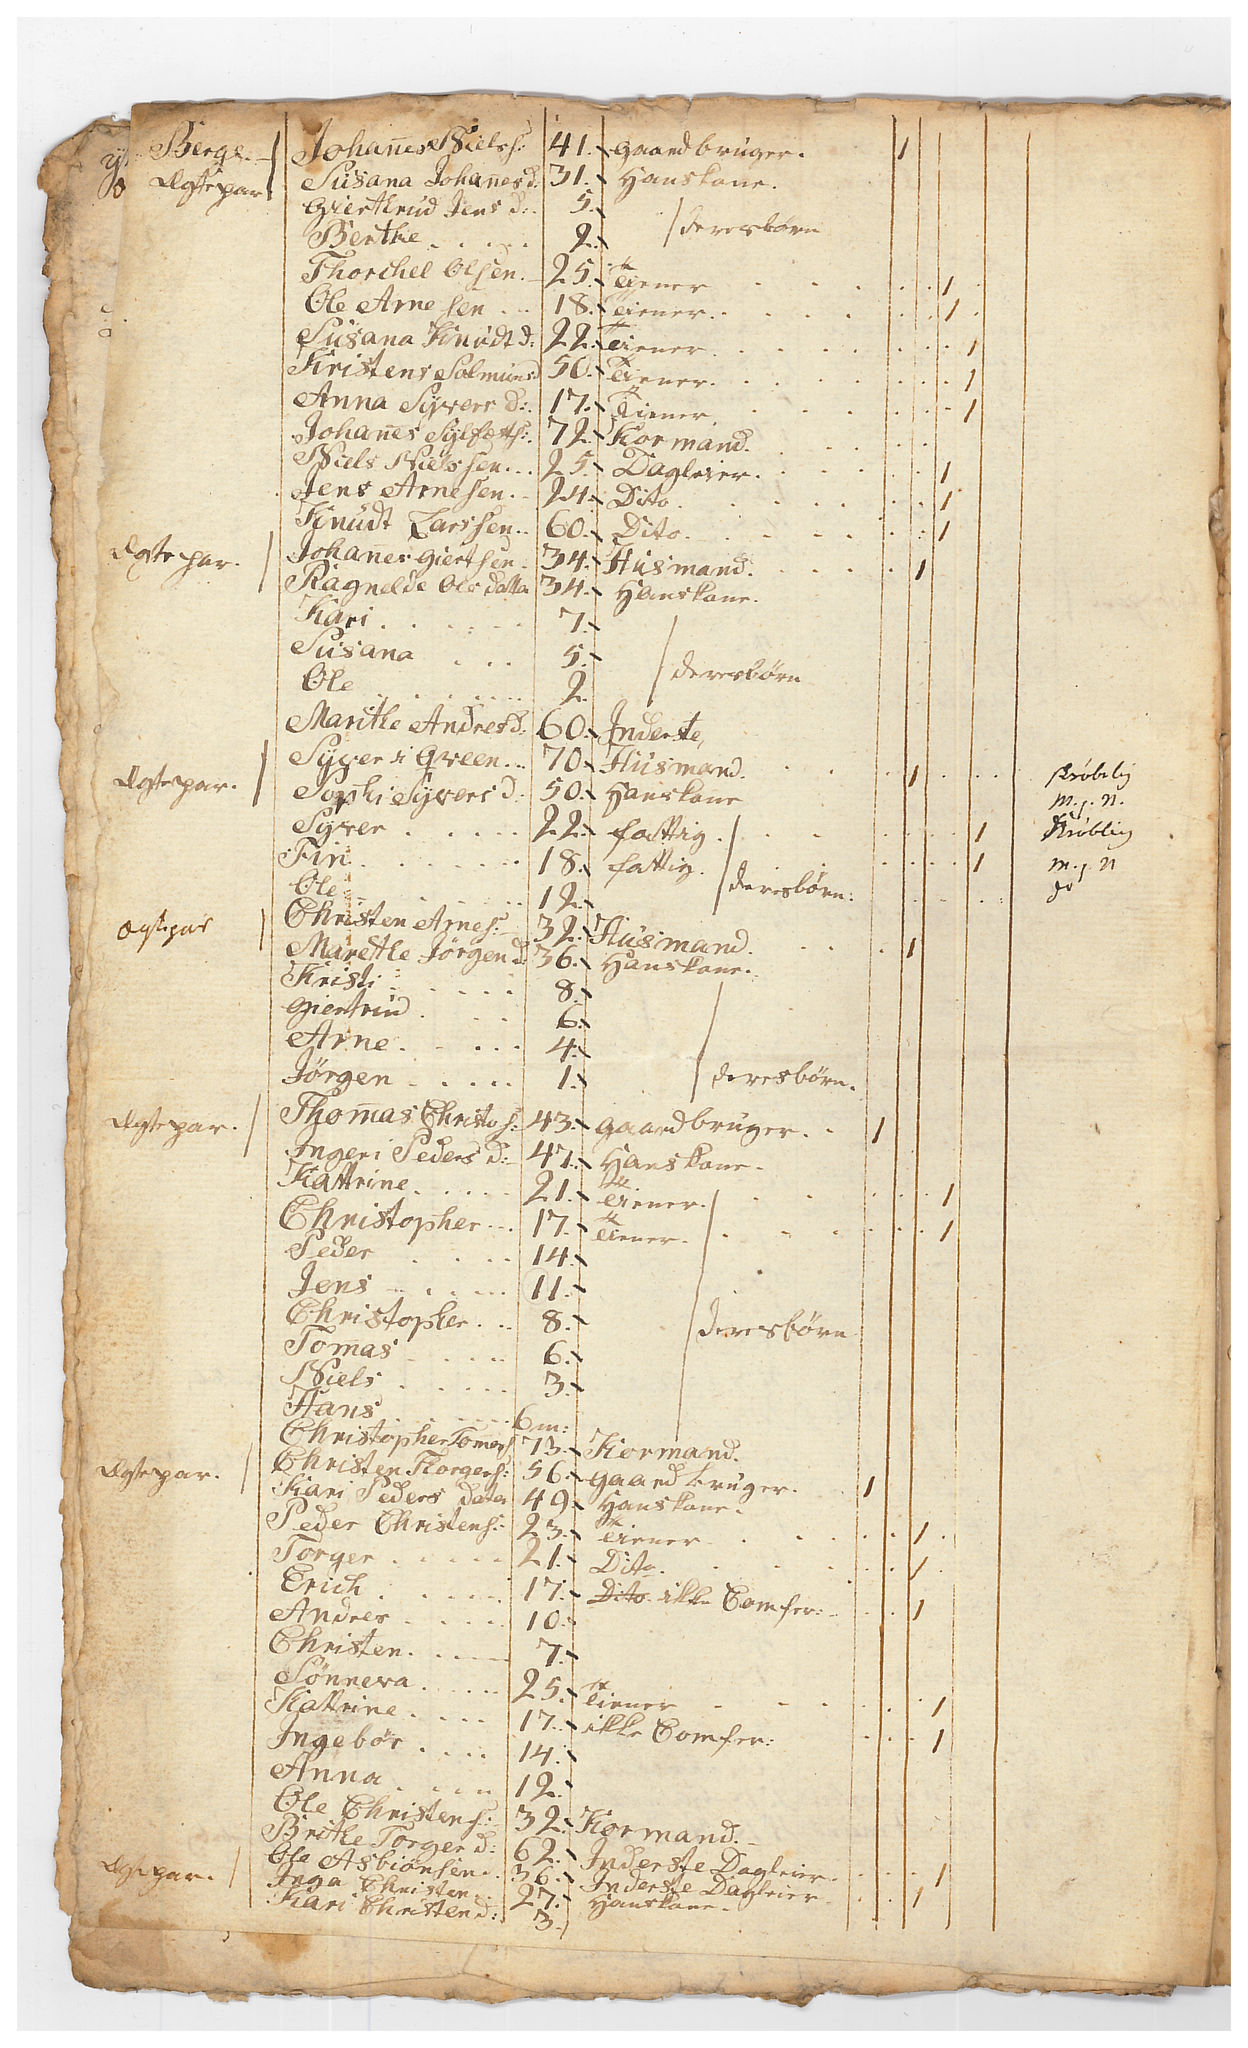 Berge. Johan̄es Niels s: 41. gaardbruger. 1
Ægtepar Susana Johan̄es d: 31. Hanskone.
Giertrud Jens d: 5.
Berthe 2. deresbørn
Thorchel Olsen. 25. Tiener 1
Ole Arnesen 18. Tiener. 1
Susana Knudt d: 22. Tiener. 1
Kristens Solmuns d 50. Tiener. 1
Anna Syvers d: 17. Tiener 1
Johan̄es Sylfests: 72. Kormand.
Niels Nielssen. 25. Dagleier. 1
Jens Arnesen. 24. Dito. 1
Knudt Larssen. 60. Dito. 1
Ægtepar. Johan̄es Giertsen. 34. Husmand. 1
Ragnelde Ols datter 34. Hanskone.
Kari 7.
Susana 5.
Ole 2. deresbørn
Marithe Andresd: 60. Inderste,
Syver i Green. 70. Husmand. 1 Skrøbelig
Ægtepar. Sophi Syvers d. 50. Hanskone m. j. N.
Syver 22. fattig. 1 Skrøblig
Siri 18. fattig. 1 m. j. N
Ole 12. deresbørn: do
Ægtepar Christen Arnes: 32. Husmand. 1
Marethe Jørgen d. 36. Hanskone.
Kristi 8.
Giertrud 6.
Arne 4.
Jørgen 1. deresbørn.
Ægtepar. Thom̄as Christo s: 43. gaardbruger. 1
Ingeri Peders d: 47. Hanskone.
Kattrine 21. Tiener. 1
Christopher 17. Tiener. 1
Peder 14.
Jens 11.
Christopher. 8. deresbørn
Tom̄as 6.
Niels 3.
Hans 6 m:
Christopher Tomess. 73. Kormand.
Ægtepar. Christen Thorgers: 56. gaardbruger. 1
Kari Peders dater 49. Hanskone.
Peder Christens: 23. Tiener 1
Torger 21. Dito. 1
Erich 17. Dito. ikke Comfer: 1
Andres 10.
Christen. 7.
Sønneva 25. Tiener 1
Kattrine. 17. ikke Comfer: 1
Ingebør 14.
Anna 12.
Ole Christens: 32. Kormand.
Brithe Torger d: 62. Inderste Dagleier. 1
Ægtepar. Ole Asbiønsen. 36. Inderste Dagleier. 1
Inga Christen 27. Hanskone.
Kari Christen d: 3.